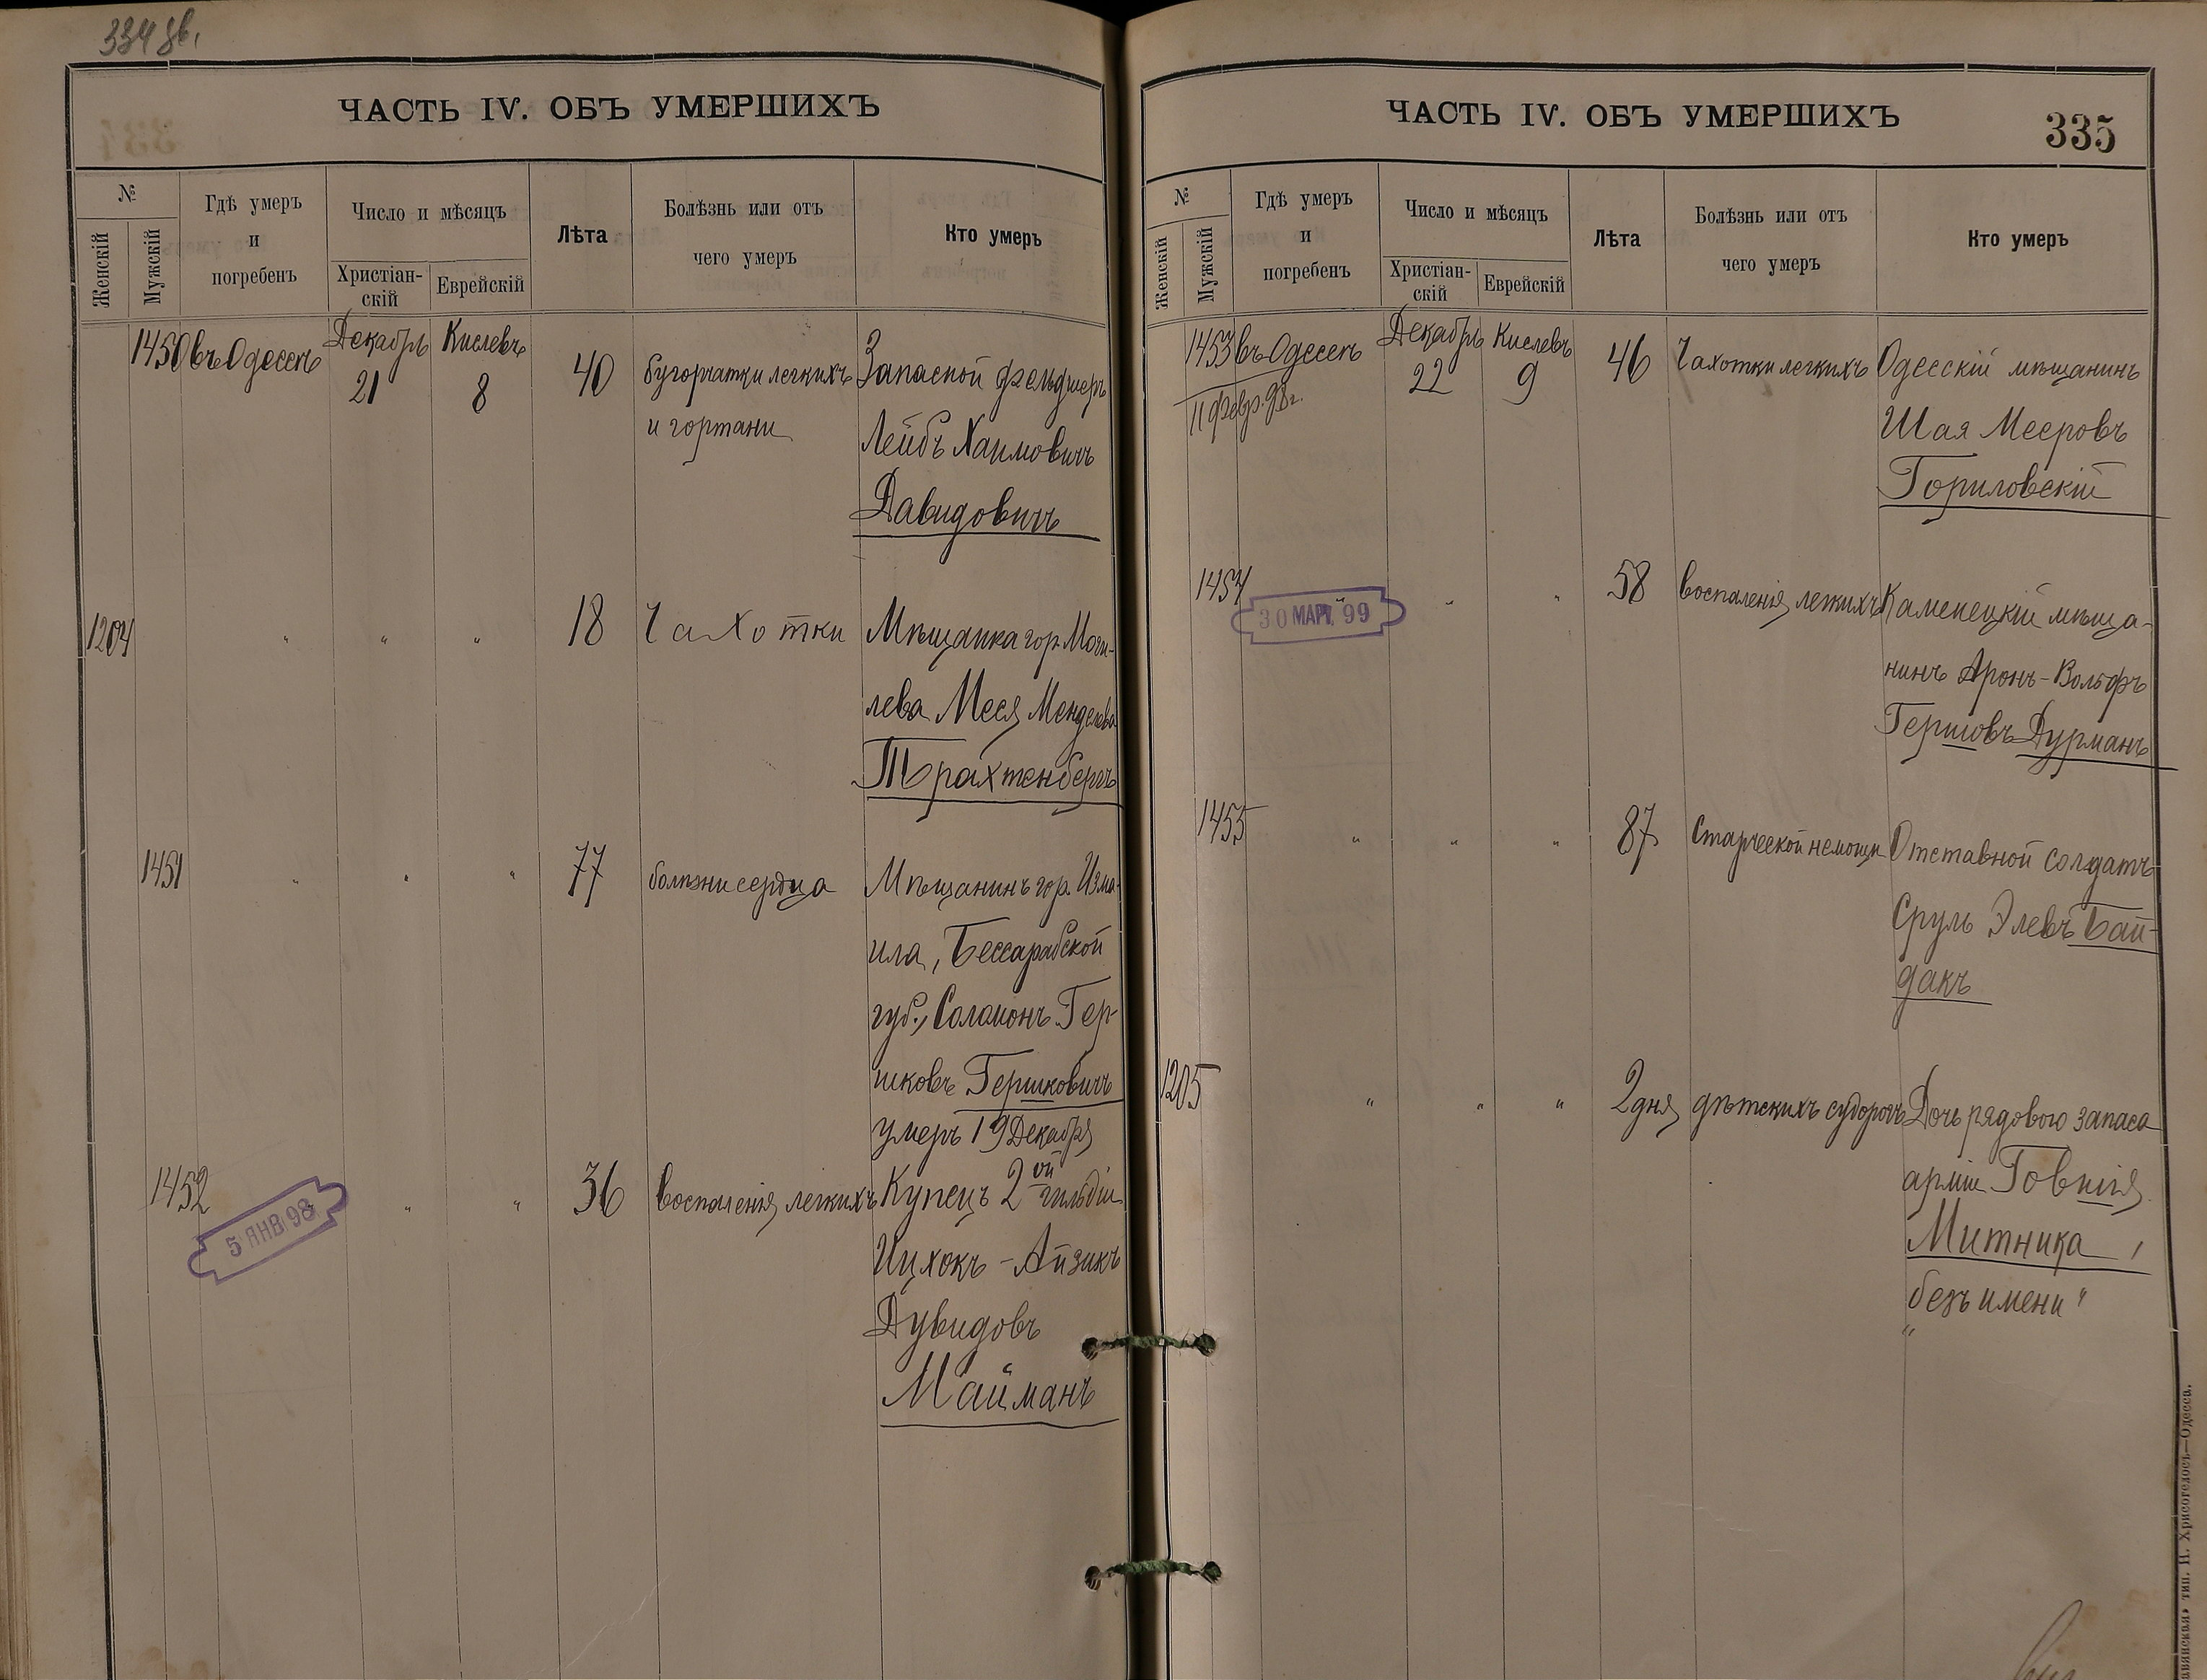 334 об.
ЧАСТЬ IV. ОБЪ УМЕРШИХЪ
№
Женскій
Мужскій
Гдѣ умеръ
и
погребенъ
Число и мѣсяцъ
Христіан-
скій
Еврейскій
Лѣта
Болѣзнь или отъ
чего умеръ
Кто умеръ
1450 въ Одессѣ Декабрь 21 Кислевъ 8 40 бугорчатки легкихъ
и гортани
Запасной фельдшеръ
Лейбъ Хаимовичъ
Давидовичъ
1204 " " " 18 Чахотки Мѣщанка гор. Моги-
лева Меся Менделева
Трахтенбергъ
1451 " " " 77 болѣзни сердца Мѣщанинъ гор. Изма-
ила, Бессарабской
губ., Соломонъ Гер-
шковъ Гершковичъ
умеръ 19 Декабря
1452 " " 36 воспаленія легкихъ Купецъ 2ой гильдіи
5 ЯНВ 98
Ицхокъ-Айзикъ
Дувидовъ
Майманъ
ЧАСТЬ IV. ОБЪ УМЕРШИХЪ
335
№
Женскій
Мужскій
Гдѣ умеръ
и
погребенъ
Число и мѣсяцъ
Христіан-
скій
Еврейскій
Лѣта
Болѣзнь или отъ
чего умеръ
Кто умеръ
1453 въ Одессѣ Декабрь 22 Кислевъ 9 46 Чахотки легкихъ Одесскій мѣщанинъ
11 февр. 98 г.
Шая Мееровъ
Гориловскій
1454 " " " 58 воспаленія легкихъ Каменецкій мѣща-
30 МАР. 99
нинъ Аронъ-Вольфъ
Гершовъ Дурманъ
1455 " " " 87 Старческой немощи Отставной солдатъ
Сруль Элевъ Бай-
дакъ
1205 " " " 2 дня дѣтскихъ судорогъ Дочь рядового запаса
арміи Говшія
Митника,
безъ имени "
"
тип. Н. Хрисогелосъ—Одесса.